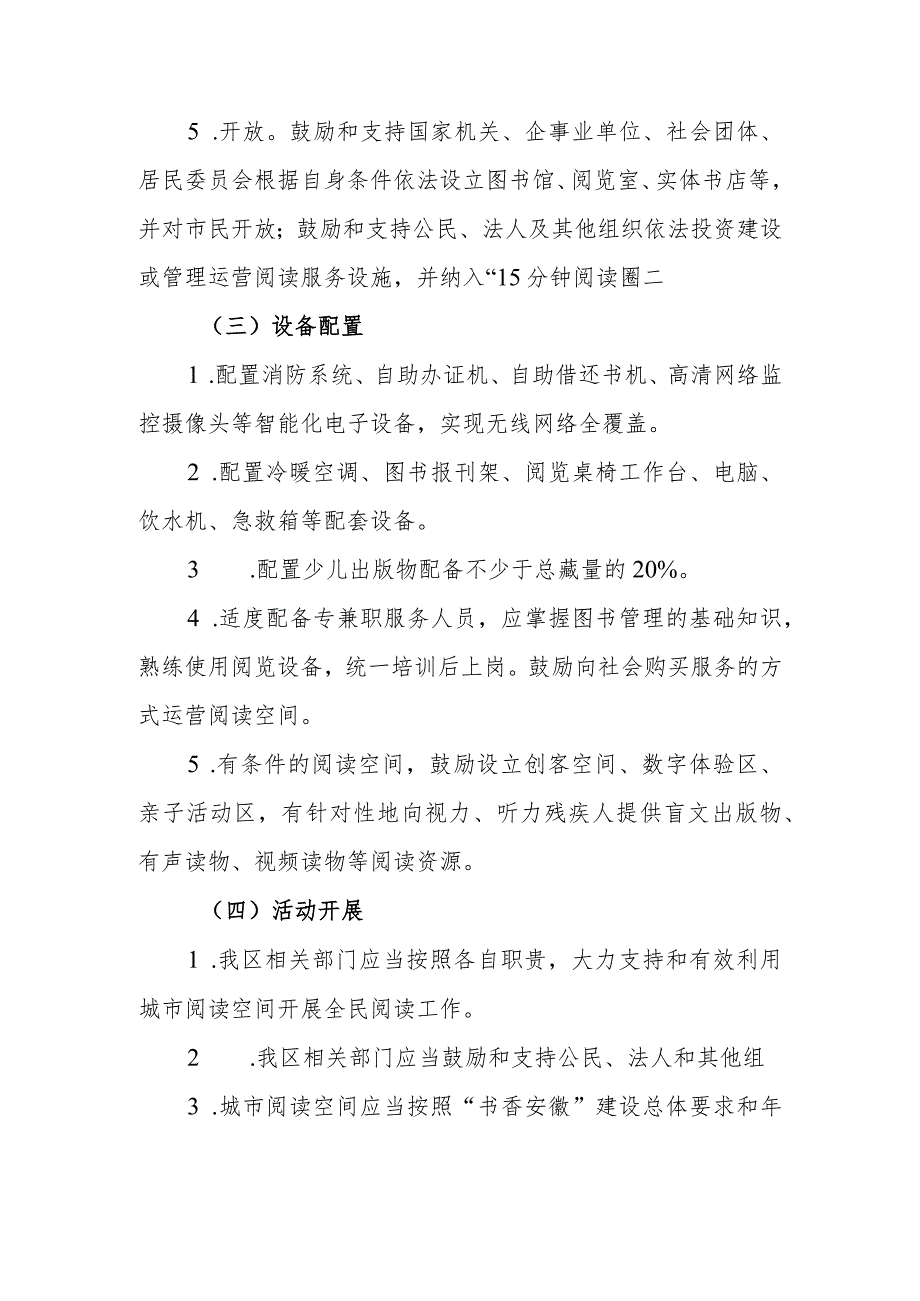 5 .开放。鼓励和支持国家机关、企事业单位、社会团体、
居民委员会根据自身条件依法设立图书馆、阅览室、实体书店等，
并对市民开放；鼓励和支持公民、法人及其他组织依法投资建设
或管理运营阅读服务设施，并纳入“15分钟阅读圈二
（三）设备配置
1 .配置消防系统、自助办证机、自助借还书机、高清网络监
控摄像头等智能化电子设备，实现无线网络全覆盖。
2 .配置冷暖空调、图书报刊架、阅览桌椅工作台、电脑、
饮水机、急救箱等配套设备。
3 .配置少儿出版物配备不少于总藏量的20%。
4 .适度配备专兼职服务人员，应掌握图书管理的基础知识，
熟练使用阅览设备，统一培训后上岗。鼓励向社会购买服务的方
式运营阅读空间。
5 .有条件的阅读空间，鼓励设立创客空间、数字体验区、
亲子活动区，有针对性地向视力、听力残疾人提供盲文出版物、
有声读物、视频读物等阅读资源。
（四）活动开展
1 .我区相关部门应当按照各自职贵，大力支持和有效利用
城市阅读空间开展全民阅读工作。
2 .我区相关部门应当鼓励和支持公民、法人和其他组
3 .城市阅读空间应当按照“书香安徽”建设总体要求和年